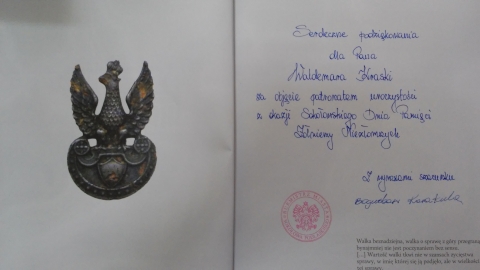 Serdeczne podziękowania
dla Pana
Waldemara Kraski
za objęcie patronatem uroczystości
z okazji Sokołowskiego Dnia Pamięci
Żołnierzy Niezłomnych
Z wyrazami szacunku
Walka beznadziejna, walka o sprawę z góry przegraną
bynajmniej nie jest poczynaniem bez sensu.
[...] Wartość walki tkwi nie w szansach zwycięstwa
sprawy, w imię której się ją podjęło, ale w wielkości
tej sprawy.